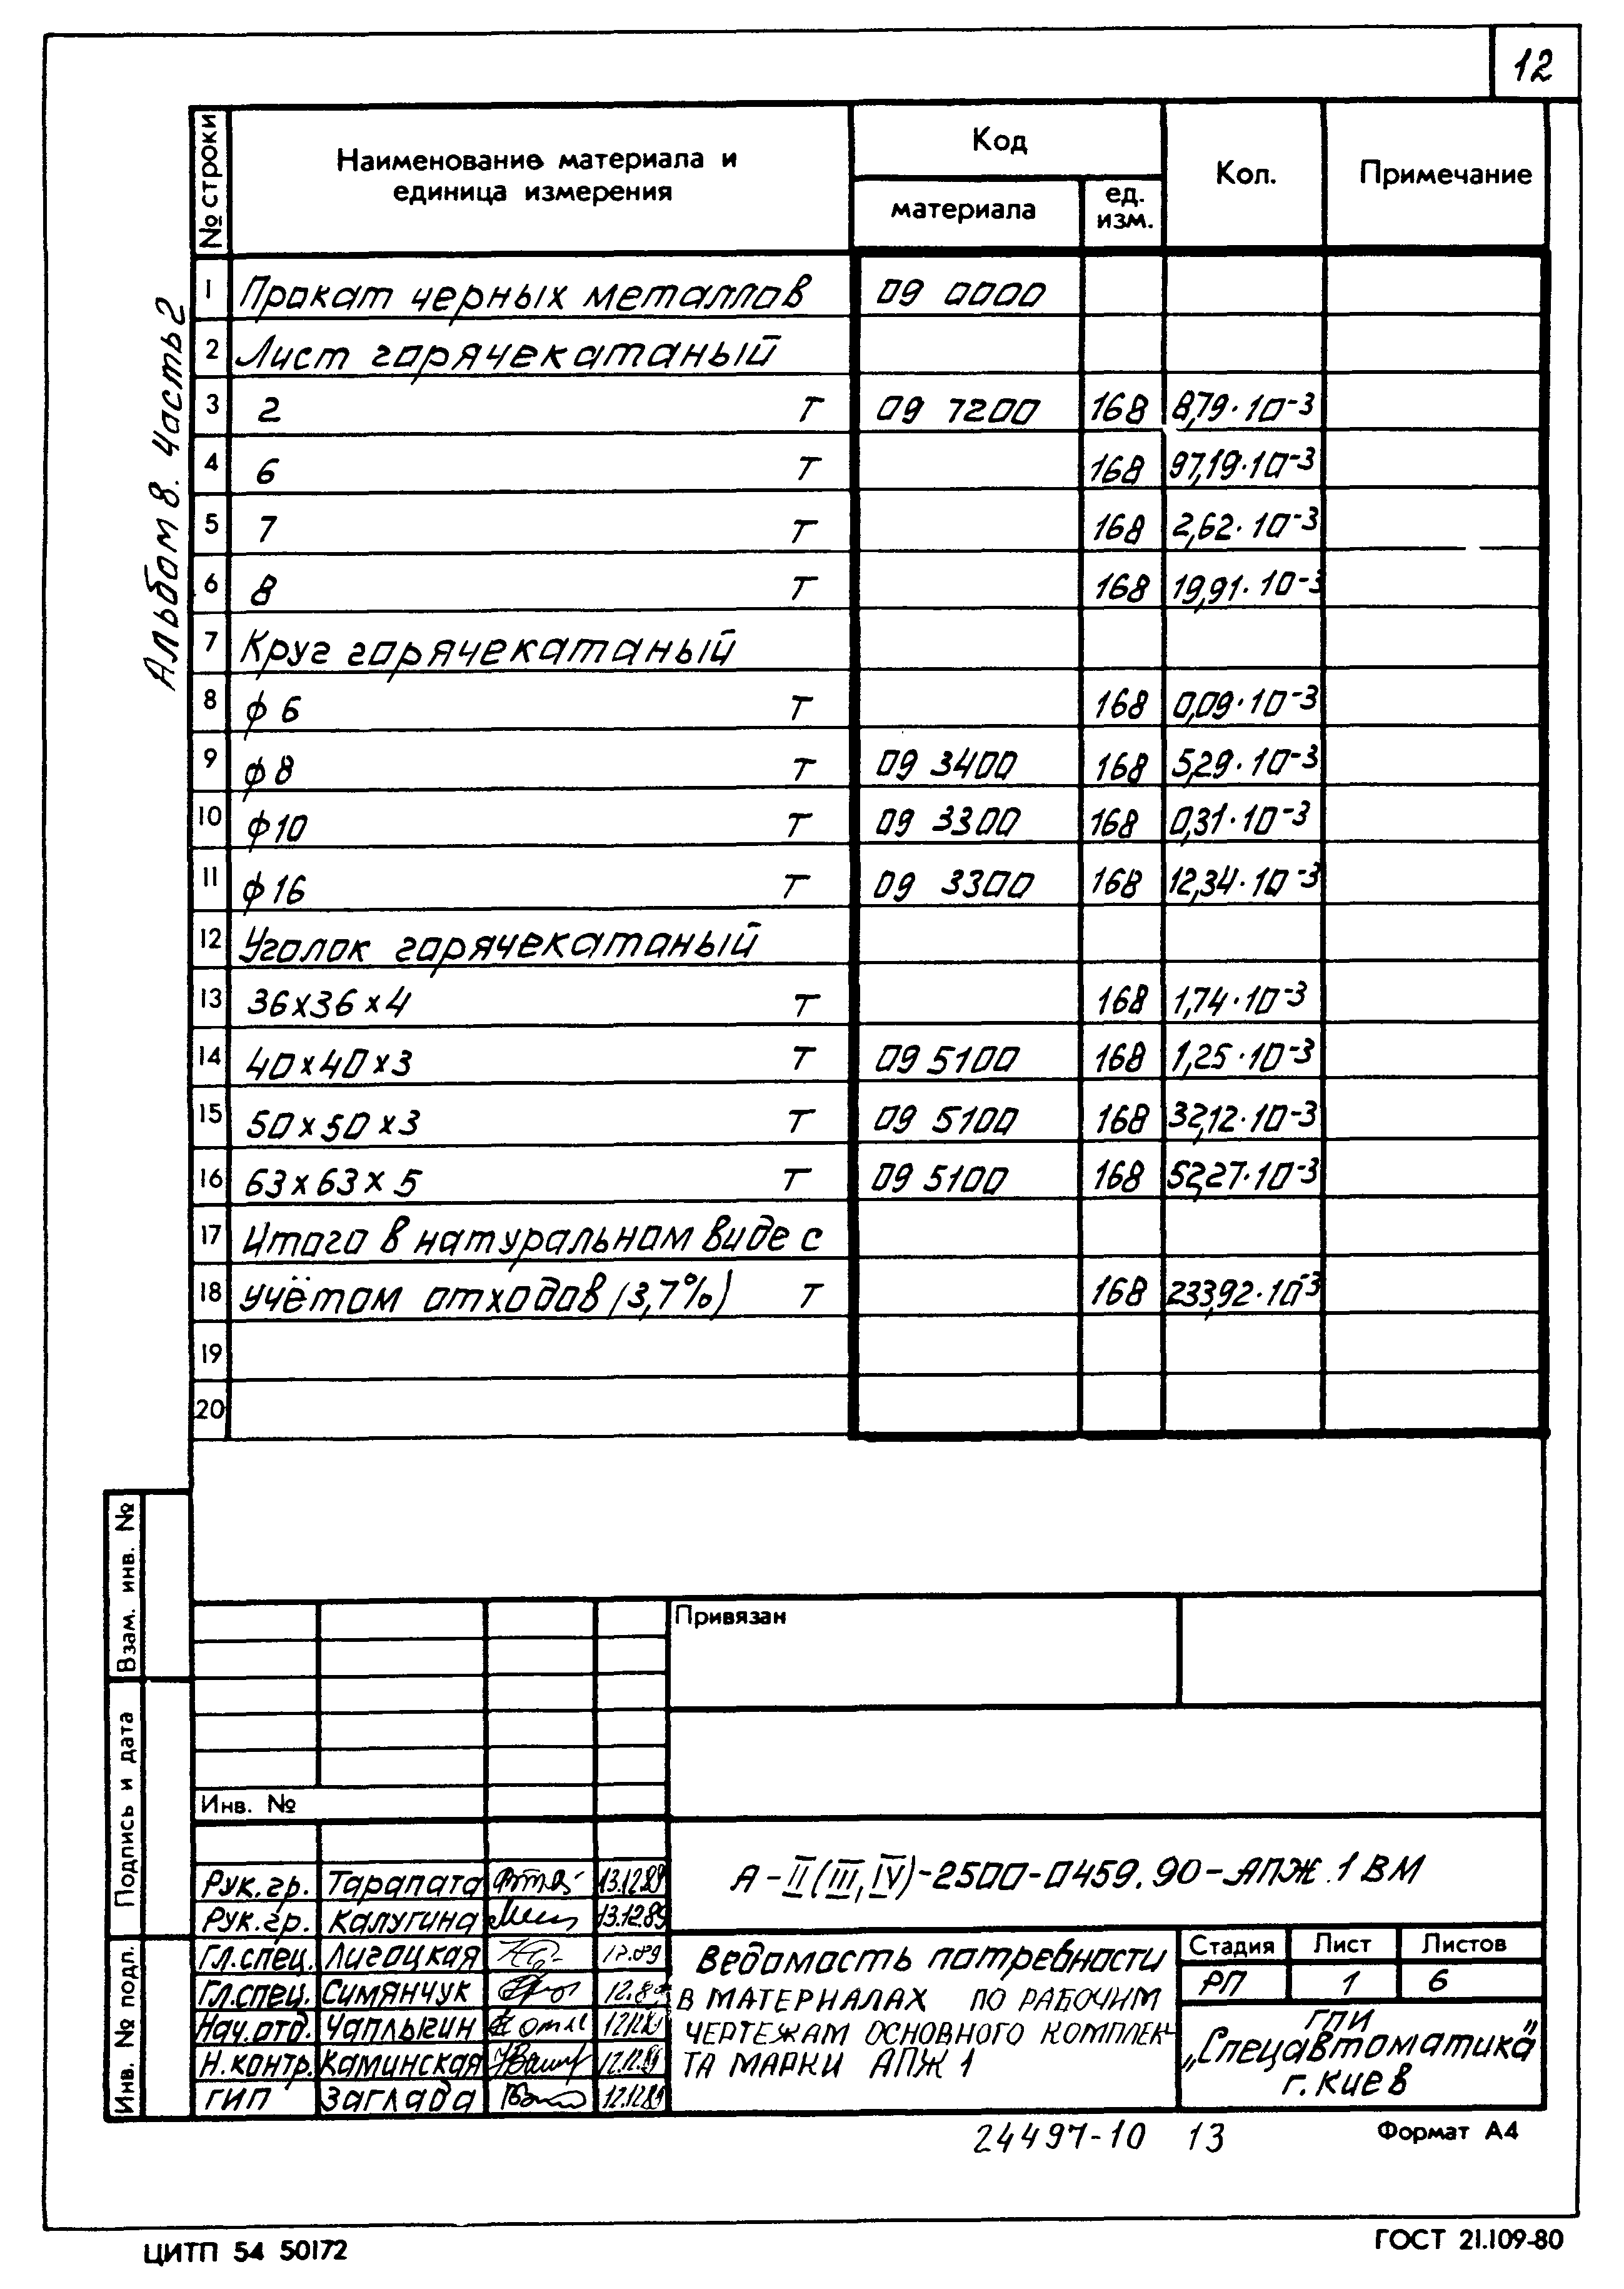 12
Альбом 8. Часть 2
№ строки
Наименование материала и
единица измерения
Код
материала
ед.
изм.
Кол.
Примечание
1 Прокат черных металлов 09 0000
2 Лист горячекатаный
3 2 т 09 7200 168 8,79·10⁻³
4 6 т 168 97,19·10⁻³
5 7 т 168 2,62·10⁻³
6 8 т 168 19,91·10⁻³
7 Круг горячекатаный
8 ϕ6 т 168 0,09·10⁻³
9 ϕ8 т 09 3400 168 5,29·10⁻³
10 ϕ10 т 09 3300 168 0,31·10⁻³
11 ϕ16 т 09 3300 168 12,34·10⁻³
12 Уголок горячекатаный
13 36х36х4 т 168 1,74·10⁻³
14 40х40х3 т 09 5100 168 1,25·10⁻³
15 50х50х3 т 09 5100 168 32,12·10⁻³
16 63х63х5 т 09 5100 168 52,27·10⁻³
17 Итого в натуральном виде с
18 учётом отходов (3,7%) т 168 233,92·10⁻³
19
20
Взам. инв. №
Подпись и дата
Инв. № подл.
Привязан
Инв. №
Рук.гр. Тарапата 13.12.89
Рук.гр. Калугина 13.12.89
Гл.спец. Лигоцкая 12.89
Гл.спец. Симянчук 12.89
Нач.отд. Чаплыгин
Н.контр. Каминская 12.12.89
ГИП Заглада 12.12.89
А-II(III,IV)-2500-0459.90-АПЖ.1 ВМ
Ведомость потребности
в материалах по рабочим
чертежам основного комплек-
та марки АПЖ1
Стадия Лист Листов
РП 1 6
ГПИ
„Спецавтоматика"
г. Киев
24497-10 13
Формат А4
ЦИТП 54 50172
ГОСТ 21.109-80